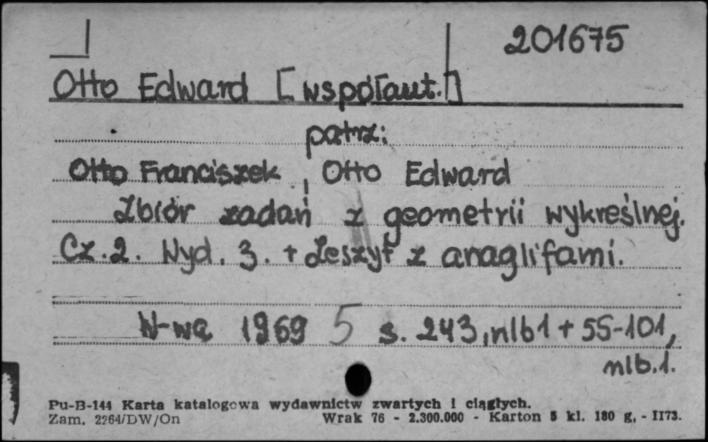 201675
Otto Edward [współaut.]
patrz:
Otto Franciszek, Otto Edward
Zbiór zadań z geometrii wykreślnej.
Cz. 2. Wyd. 3. + Zeszyt z anaglifami.
W-wa 1969 5 s. 243, nlb1 + 55-101,
nlb.1.
Pu-B-144 Karta katalogowa wydawnictw zwartych i ciągłych.
Zam. 2264/DW/On Wrak 76 - 2.300.000 - Karton 5 kl. 180 g. - II73.